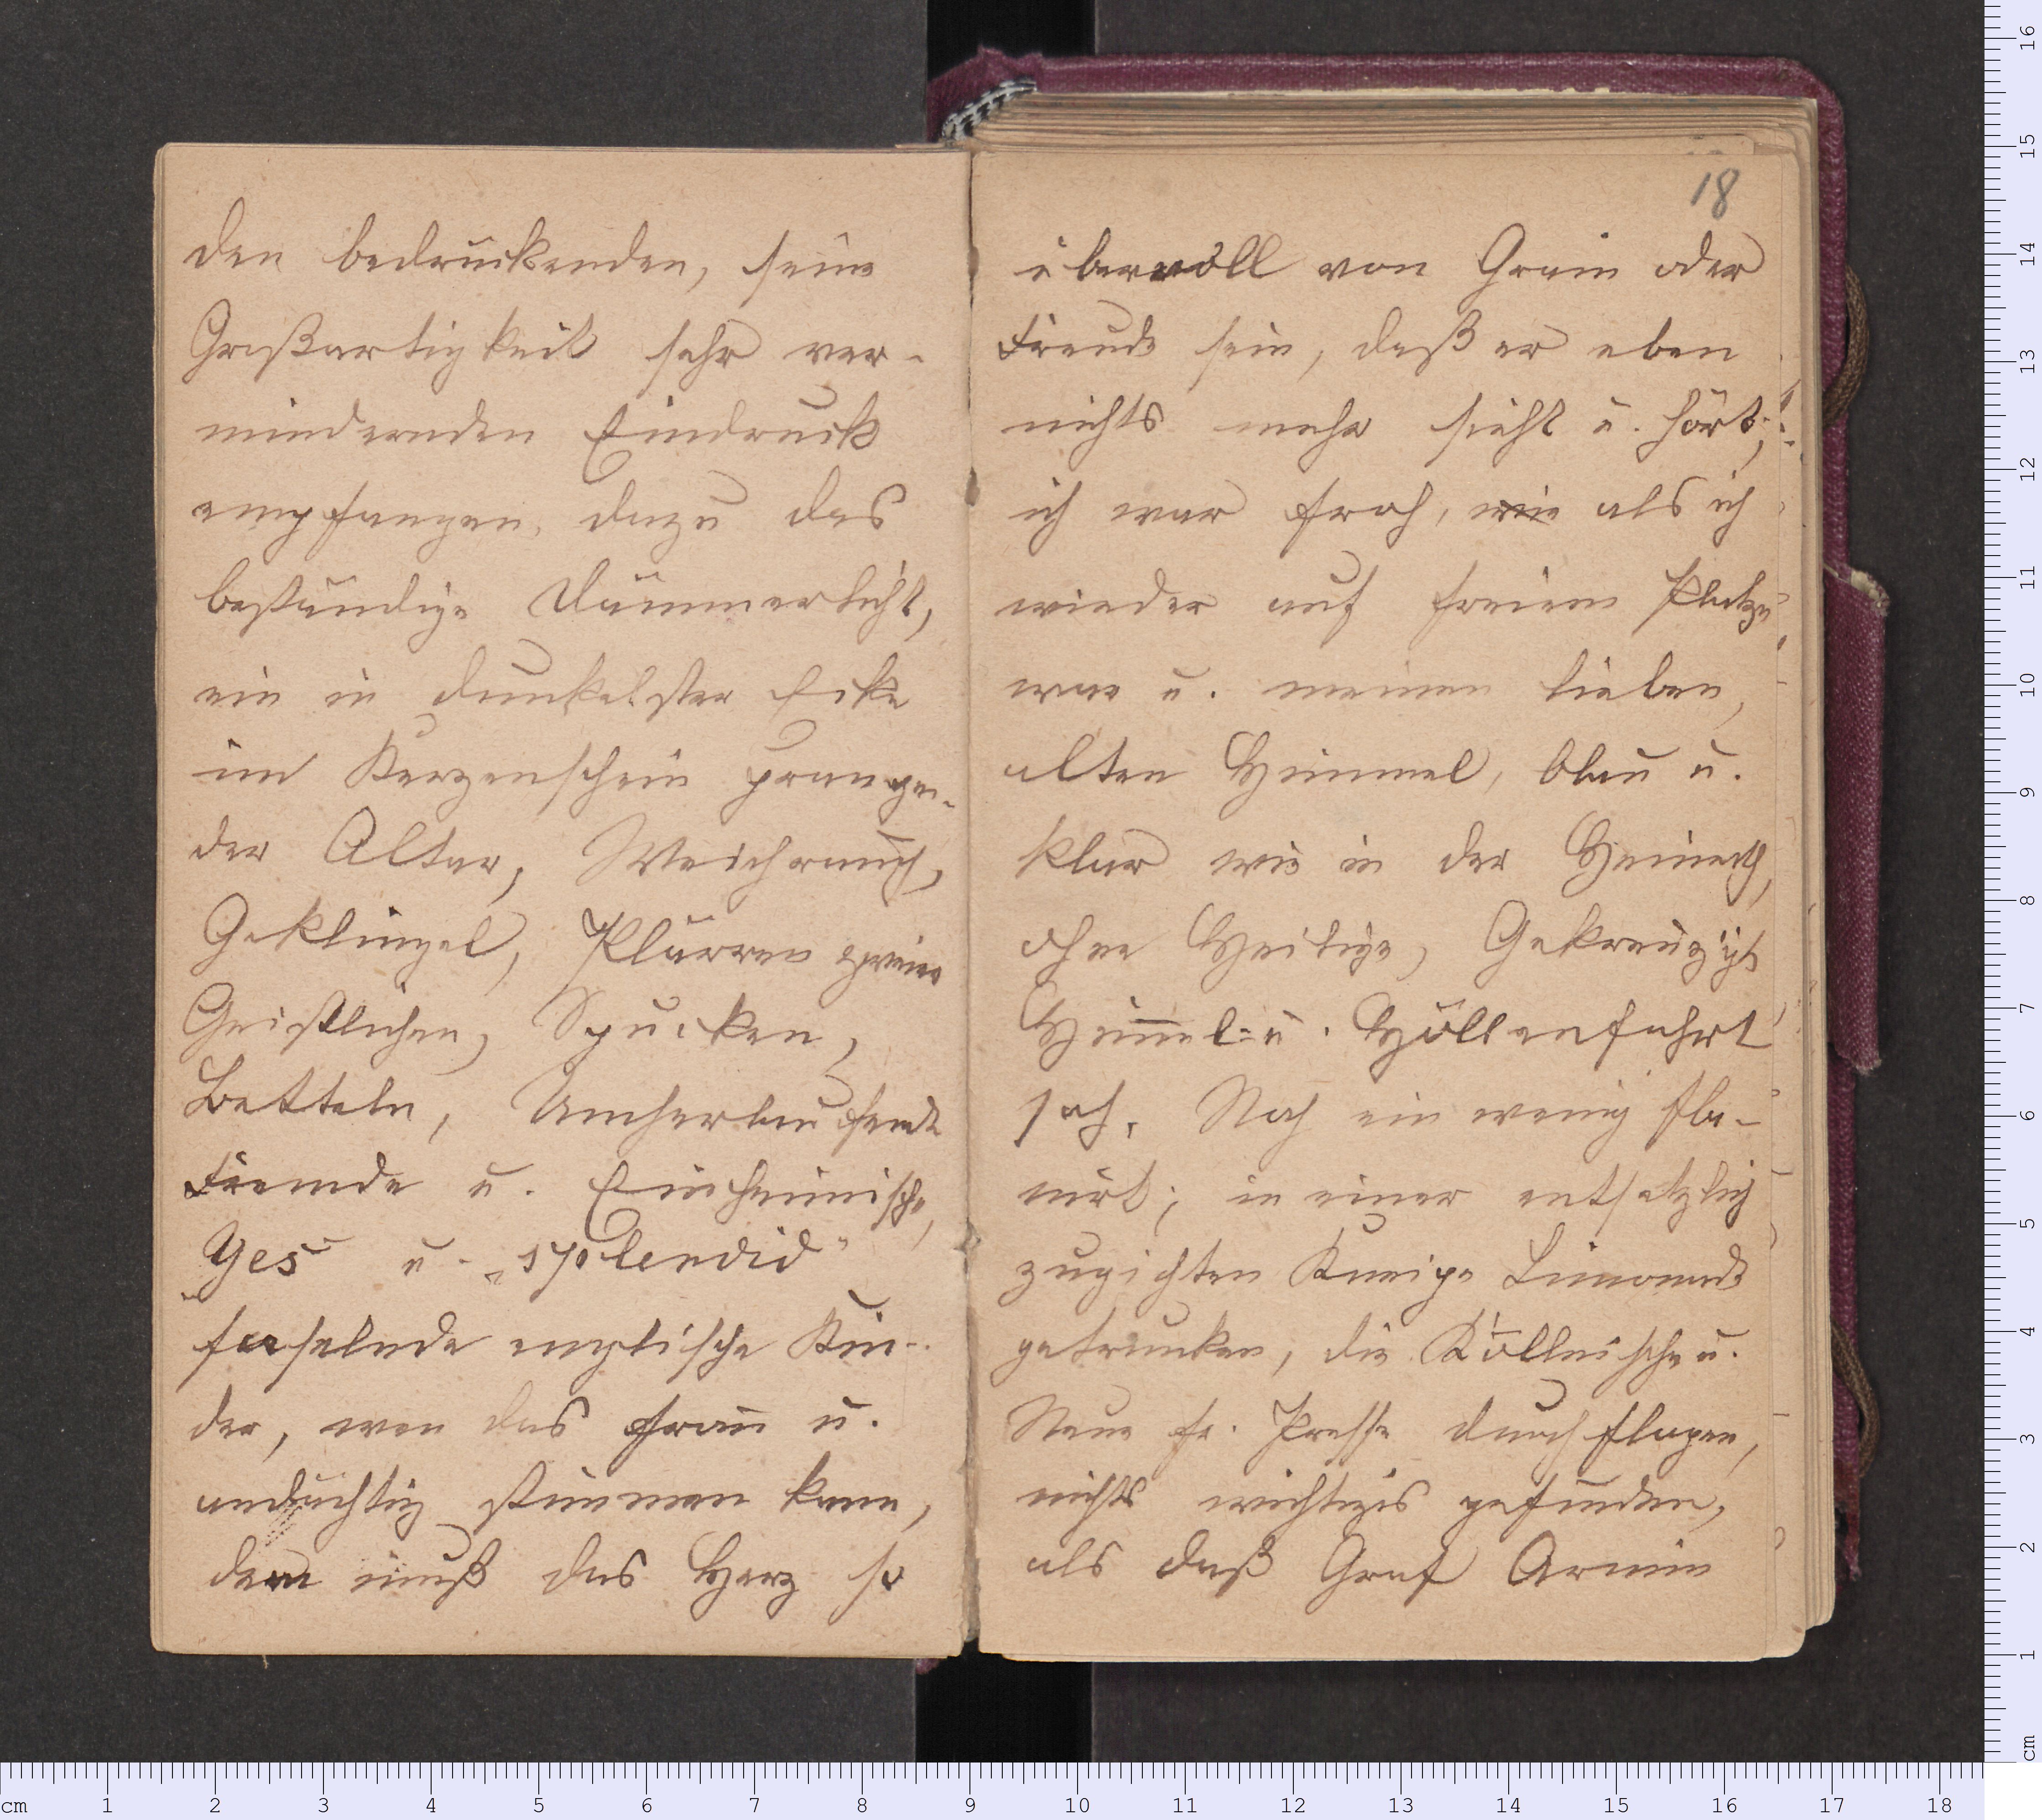 den bedrückenden, seine
Großartigkeit sehr ver-
mindernden Eindruck
empfangen, dazu das
beständige Dämmerlicht,
ein in dunkelster Ecke
im Kerzenschein prangen-
der Altar, Weichrauch,
Geklingel, Plärren
Geistlichen, Spucken,
Betteln, Umherlaufende
Fremde u. Einheimische,
„Yes“ u. „splendid“
faselnde englische Kin-
der, wen das fromm u.
andächtig stimmen kann,
dem muß das Herz so
18
übervoll von Gram oder
Freude sein, daß er eben
nichts mehr sieht u. hört;
ich war froh, wie als ich
wieder auf freiem Platze
war u. meinen lieben,
alten Himmel, blau u.
klar wie in der Heimath,
ohne Heilige, Gekreuzigte
Himmel- u. Höllenfahrt
sah. Noch ein wenig fla-
nirt; in einer entsetzlich
zugichten Kneipe Limonade
getrunken, die Köllnische u.
Neue fr. Presse durchflogen,
nichts wichtiges gefunden,
als daß Graf Armin